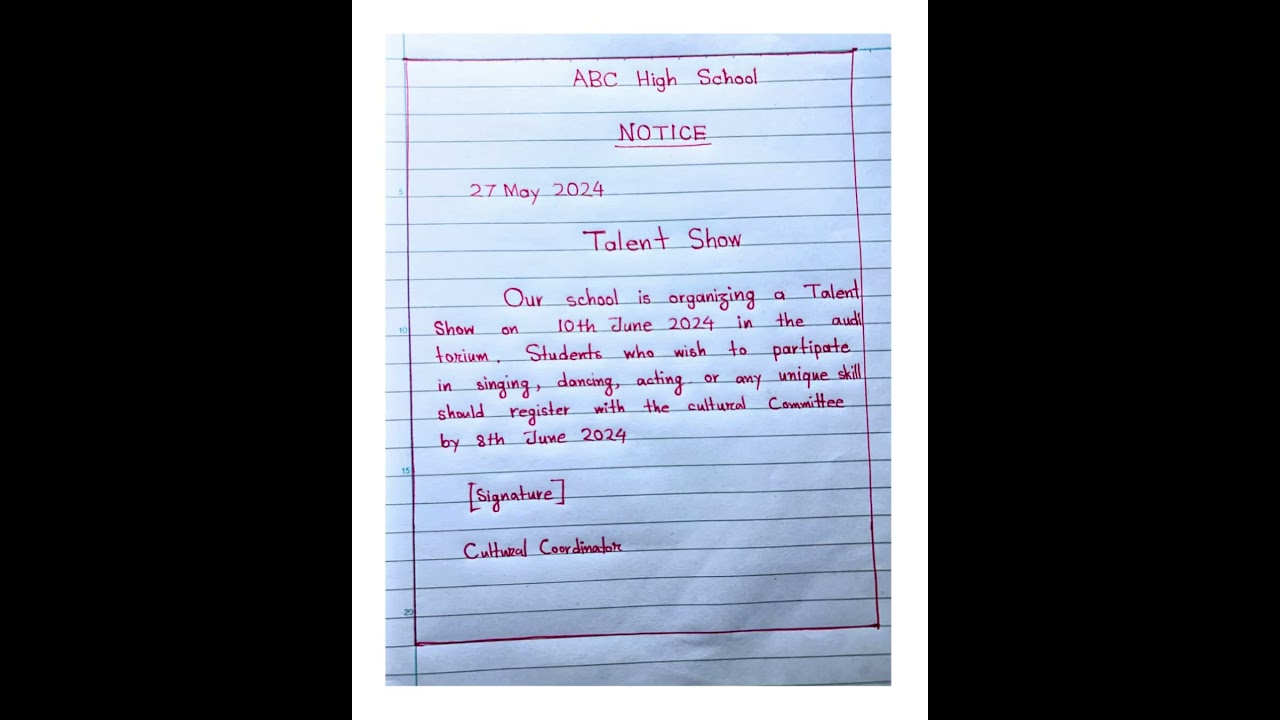 ABC High School
NOTICE
27 May 2024
Talent Show
Our school is organizing a Talent
Show on 10th June 2024 in the audi
torium. Students who wish to partipate
in singing, dancing, acting or any unique skill
should register with the cultural Committee
by 8th June 2024
[Signature]
Cultural Coordinator
5
10
15
20